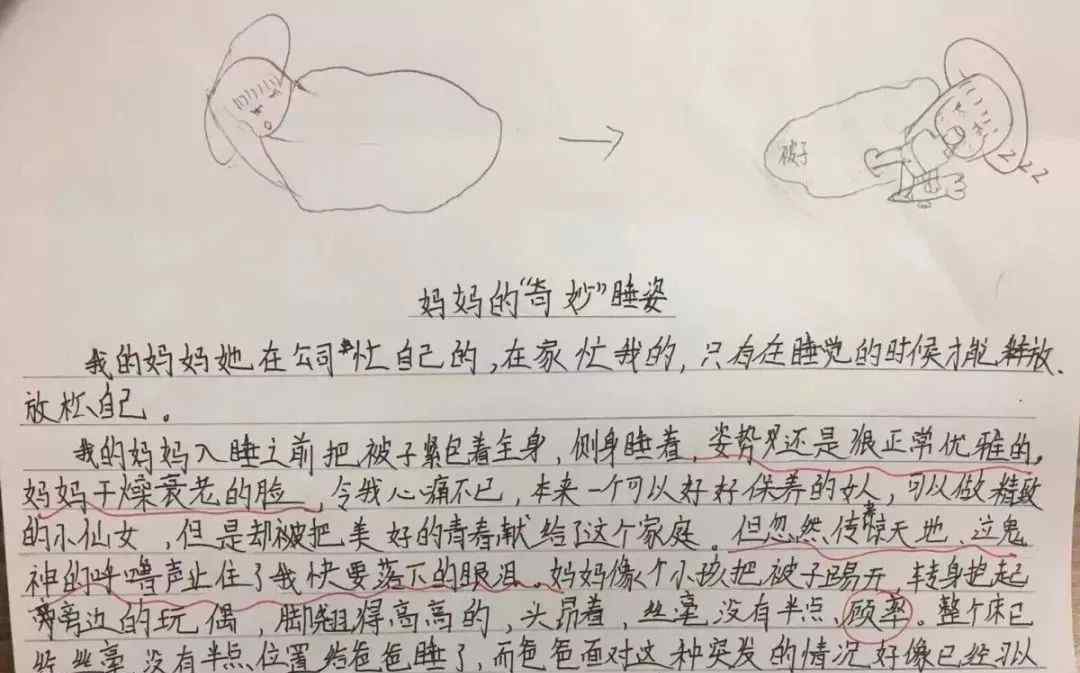 被子
z z z
妈妈的“奇妙”睡姿
我的妈妈她在公司忙自己的,在家忙我的,只有在睡觉的时候才能释放、
放松自己。
我的妈妈入睡之前把被子紧包着全身,侧身睡着,姿势还是很正常优雅的。
妈妈干燥衰老的脸,令我心痛不已,本来一个可以好好保养的女人,可以做精致
的小仙女,但是却被把美好的青春献给了这个家庭。但忽然传来惊天地、泣鬼
神的呼噜声止住了我快要落下的眼泪。妈妈像个小孩把被子踢开,转身抱起
旁边的玩偶,脚翘得高高的,头昂着,丝毫没有半点顾率。整个床已
经丝毫没有半点位置给爸爸睡了,而爸爸面对这种突发的情况好像已经习以